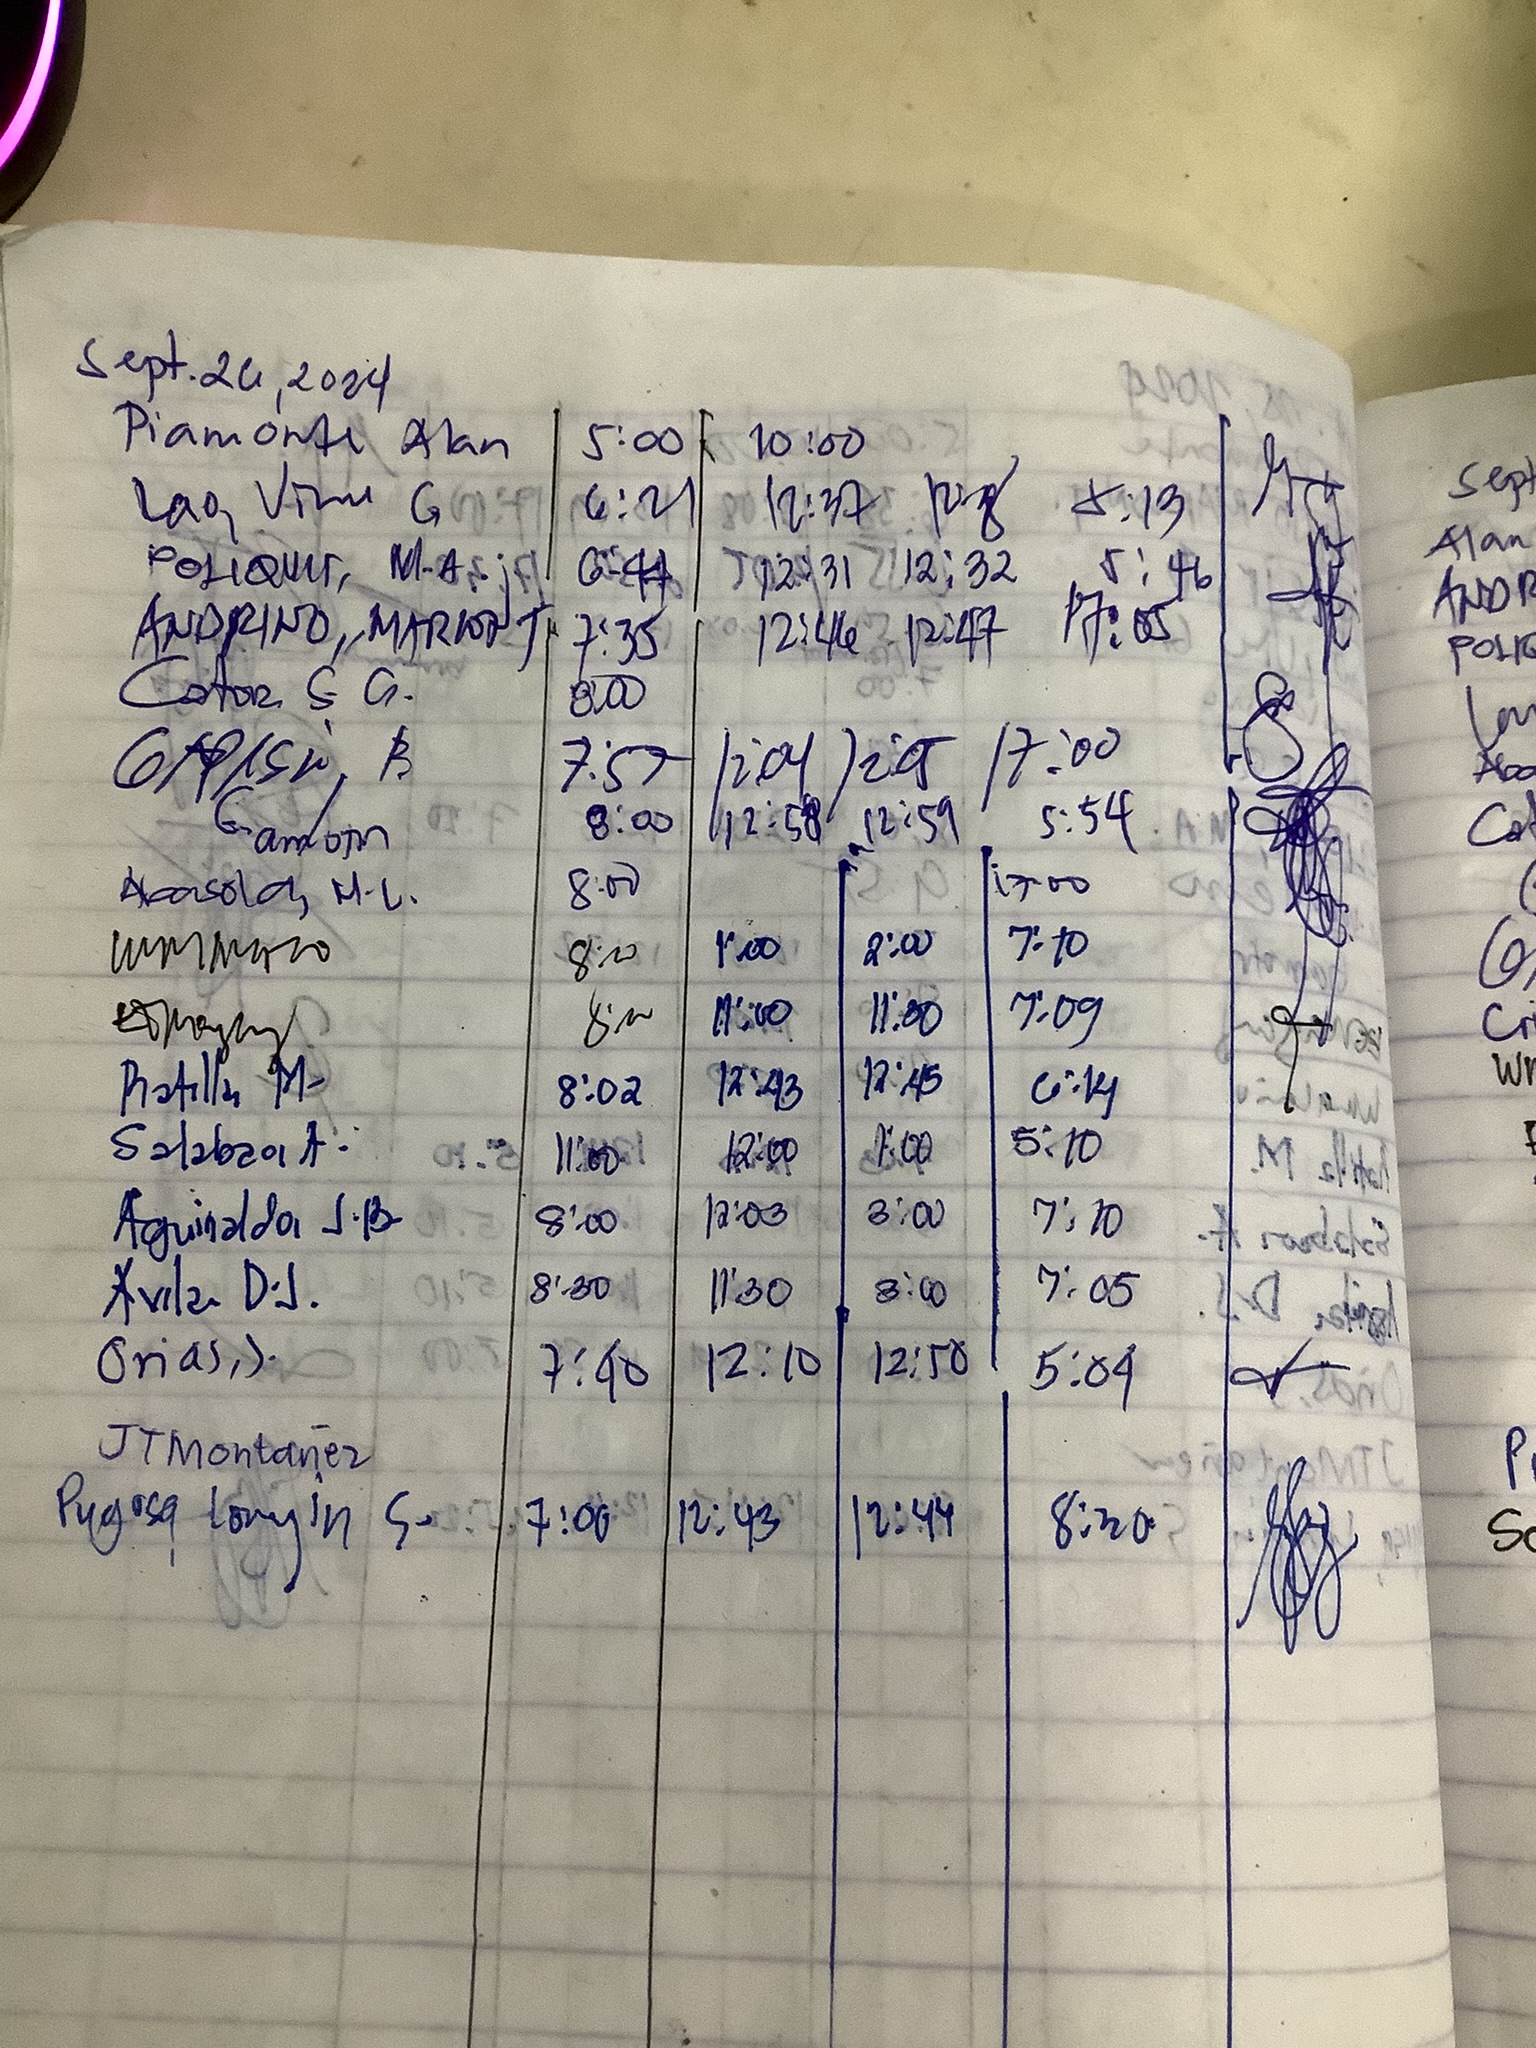 Sept. 26, 2024
Piamonte Alan 5:00 10:00
Lag, Vime G 6:21 12:37 5:13
POLIQUIT, M.A. 6:44 12:31 12:32 5:46
ANDRINO, MARION J 7:35 12:46 12:47 17:05
Cator S G. 8:00
B 7:57 12:04 12:05 17:00
Gamotin 8:00 12:58 12:59 5:54
Abasola, M.L. 8:00 17:00
8:00 1:00 2:00 7:10
8:00 11:00 11:00 7:09
Ratilla M- 8:02 12:43 12:45 6:14
Salabzor A. 11:00 12:00 1:00 5:10
Aguinaldo J.B 8:00 12:03 3:00 7:10
Avila D.J. 8:30 11:30 3:00 7:05
Orias, J. 7:40 12:10 12:50 5:04
JTMontañez
Pygosa, Longin S. 7:00 12:43 12:44 8:20
Sept
Alan
ANDR
POLIQ